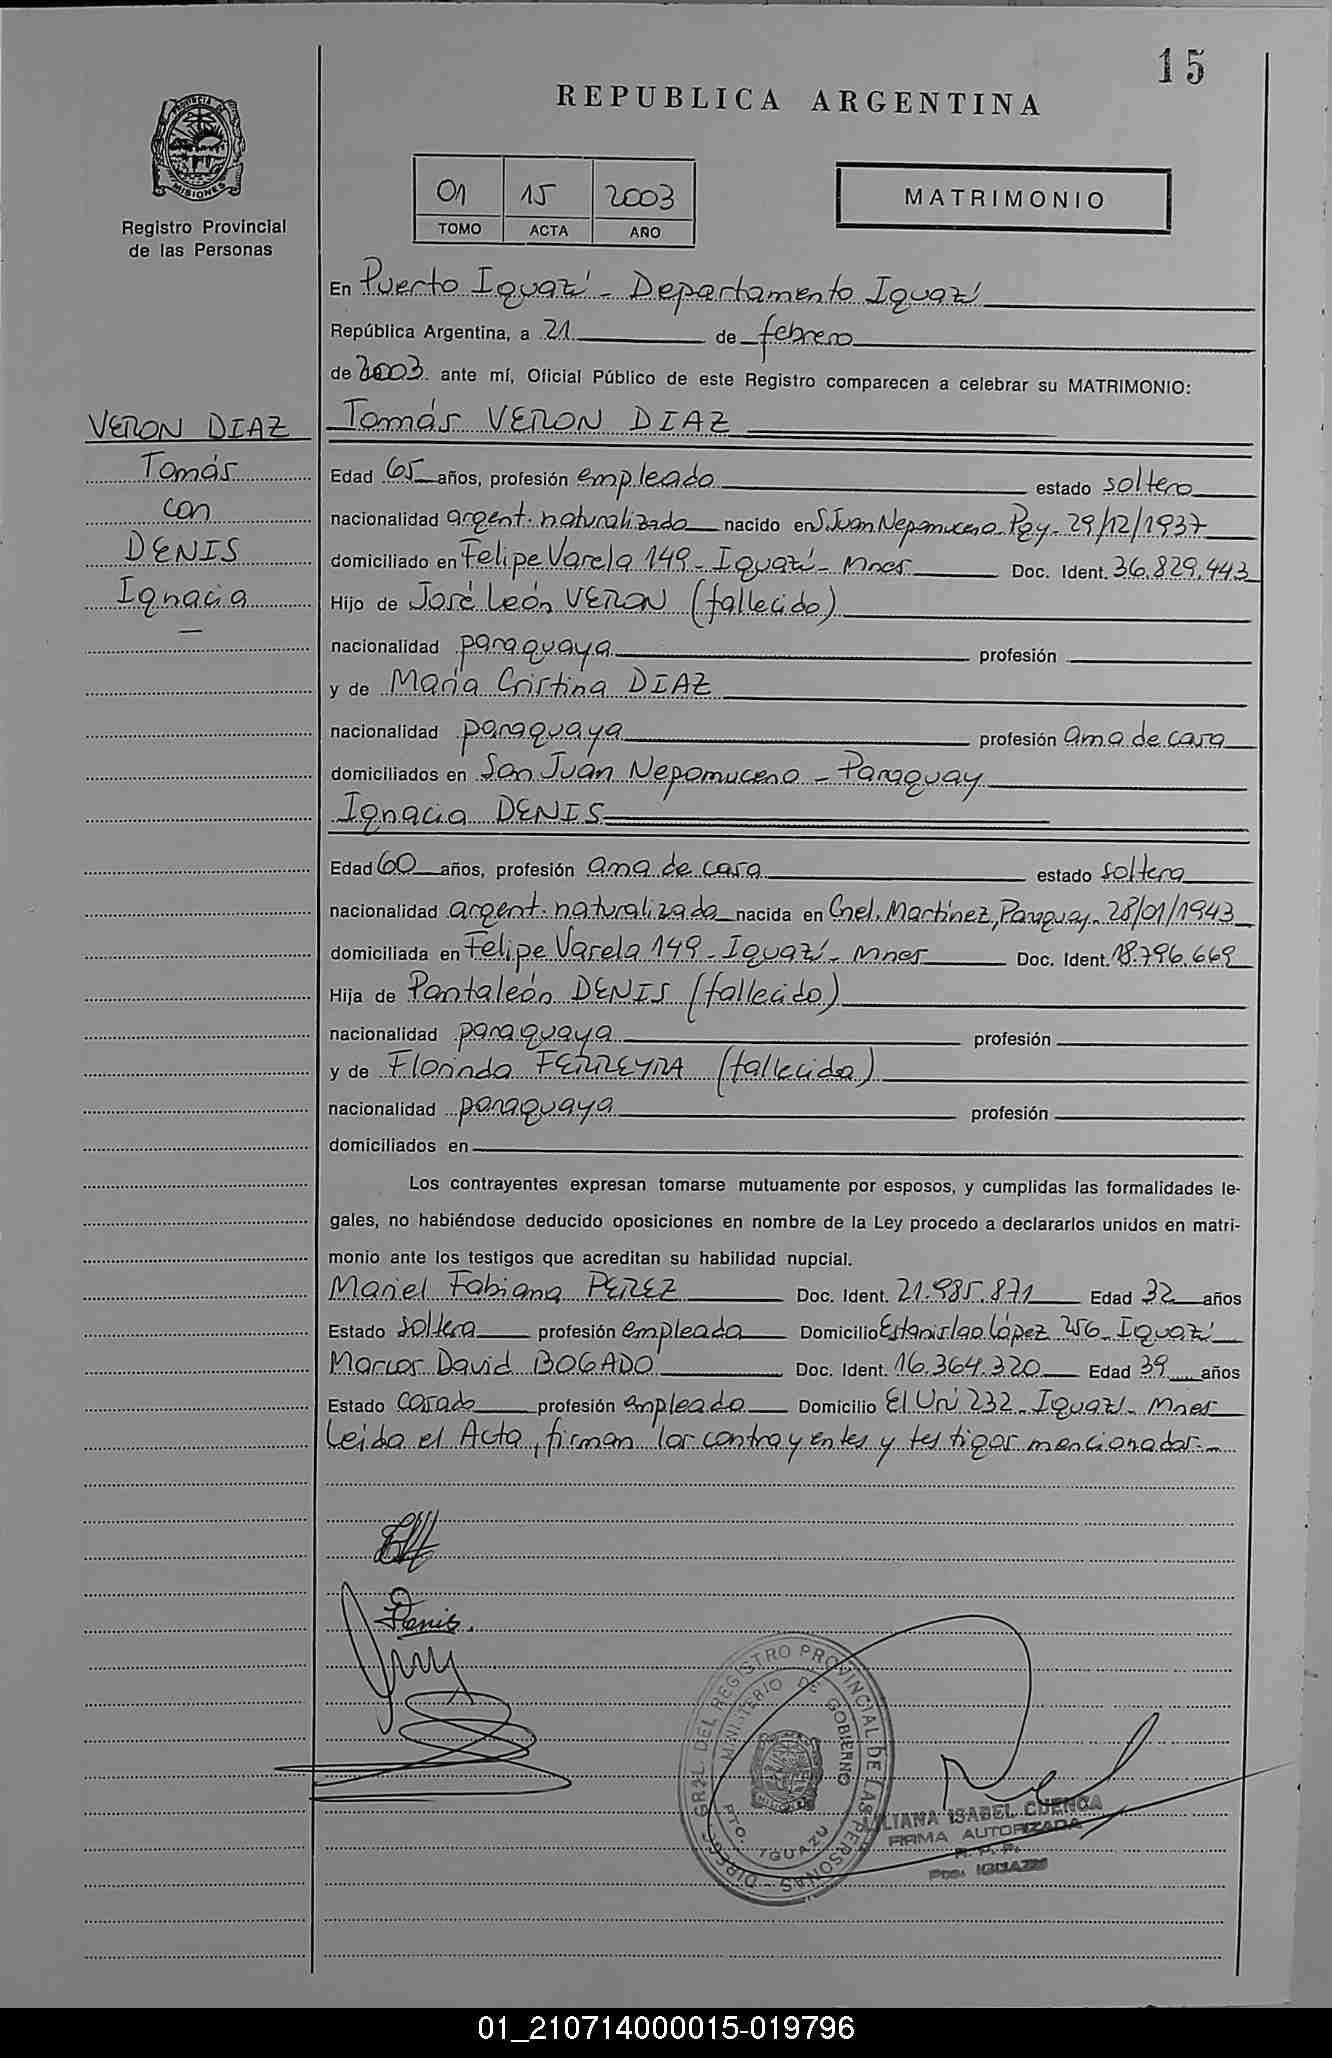 15
REPUBLICA ARGENTINA
PROVINCIA DE MISIONES
Registro Provincial
de las Personas
01 15 2003
TOMO ACTA AÑO
MATRIMONIO
En Puerto Iguazú - Departamento Iguazú
República Argentina, a 21 de febrero
de 2003 ante mí, Oficial Público de este Registro comparecen a celebrar su MATRIMONIO:
VERON DIAZ
Tomás
con
DENIS
Ignacia
Tomás VERON DIAZ
Edad 65 años, profesión empleado estado soltero
nacionalidad argent. naturalizado nacido en S. Juan Nepomuceno Pgy - 29/12/1937
domiciliado en Felipe Varela 149 - Iguazú - Mnes Doc. Ident. 36.829.443
Hijo de José León VERON (fallecido)
nacionalidad paraguaya profesión
y de María Cristina DIAZ
nacionalidad paraguaya profesión ama de casa
domiciliados en San Juan Nepomuceno - Paraguay
Ignacia DENIS
Edad 60 años, profesión ama de casa estado soltera
nacionalidad argent. naturalizada nacida en Cnel. Martínez, Paraguay - 28/01/1943
domiciliada en Felipe Varela 149 - Iguazú - Mnes Doc. Ident. 18.796.669
Hija de Pantaleón DENIS (fallecido)
nacionalidad paraguaya profesión
y de Florinda FERREYRA (fallecida)
nacionalidad paraguaya profesión
domiciliados en
Los contrayentes expresan tomarse mutuamente por esposos, y cumplidas las formalidades le-
gales, no habiéndose deducido oposiciones en nombre de la Ley procedo a declararlos unidos en matri-
monio ante los testigos que acreditan su habilidad nupcial.
Mariel Fabiana PEREZ Doc. Ident. 21.985.871 Edad 32 años
Estado soltera profesión empleada Domicilio Estanislao López 256 - Iguazú
Marcos David BOGADO Doc. Ident. 16.364.320 Edad 39 años
Estado casado profesión empleado Domicilio El Urú 232 - Iguazú - Mnes
Leida el Acta, firman los contrayentes y testigos mencionados.-
Denis.
DIREC. GRAL. DEL REGISTRO PROVINCIAL DE LAS PERSONAS
MINISTERIO DE GOBIERNO
PTO. IGUAZU
LILIANA ISABEL CUENCA
FIRMA AUTORIZADA
R. P. P.
Pto. IGUAZU
01_210714000015-019796